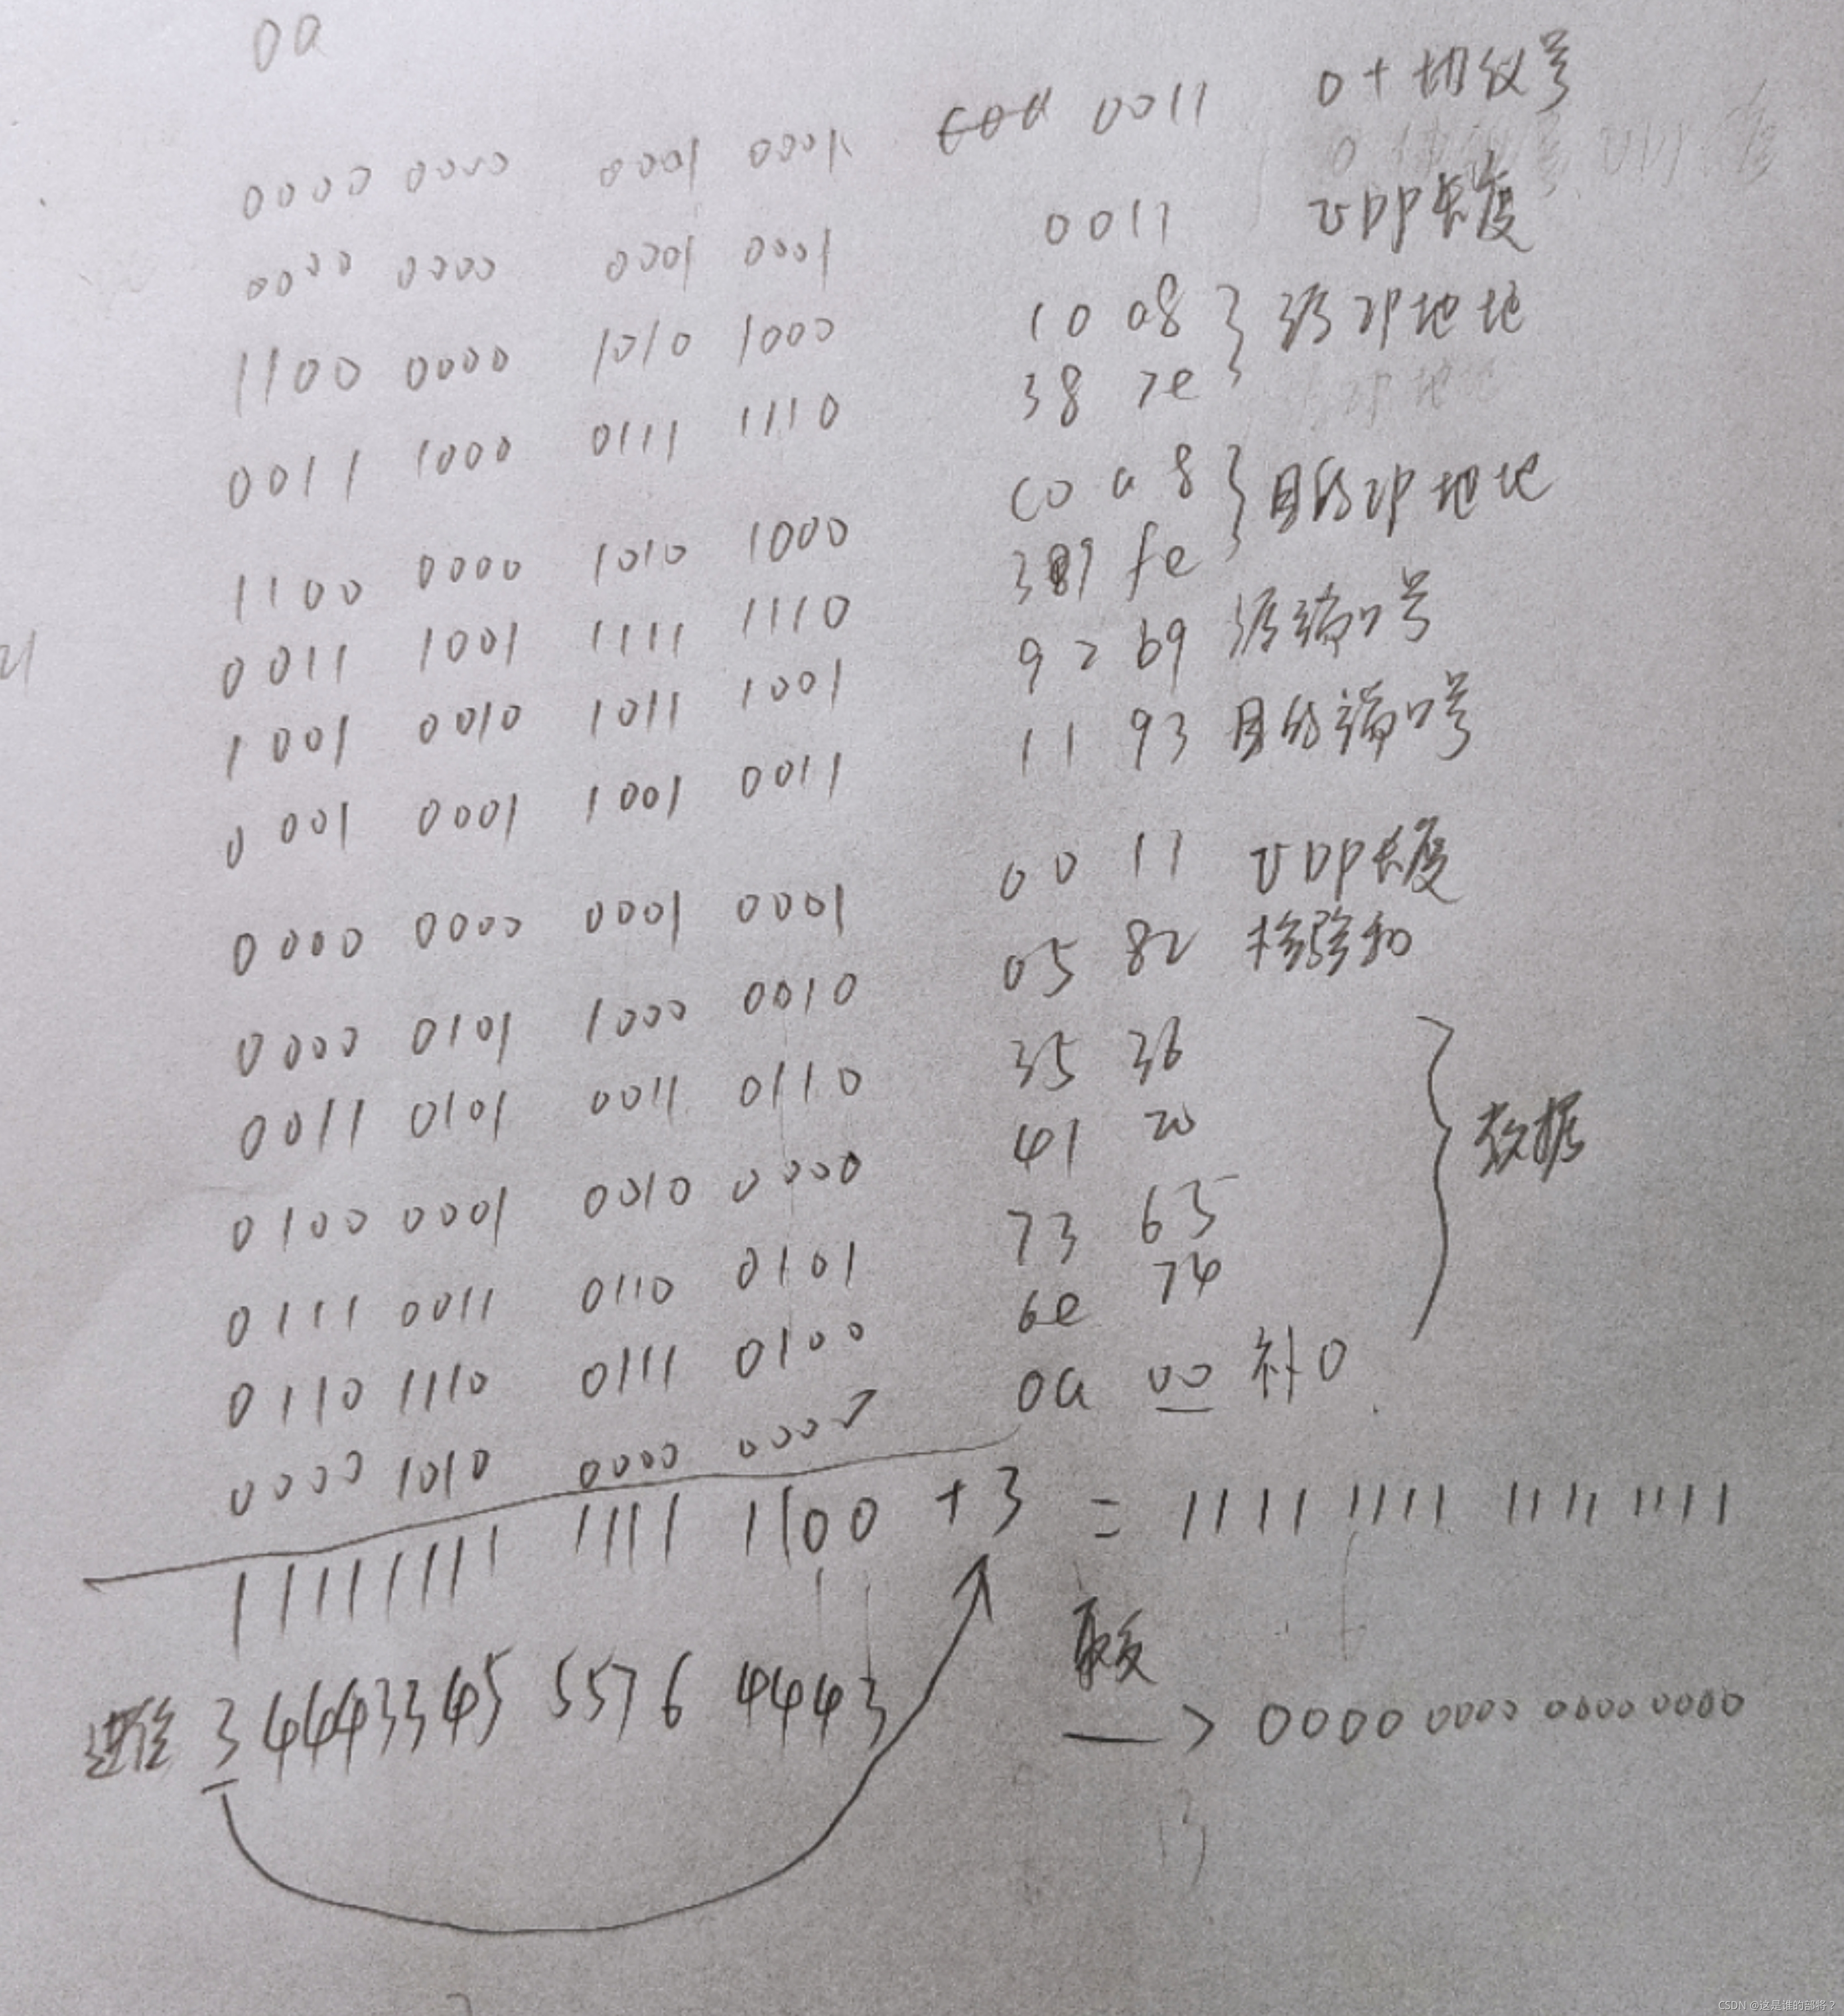 00
0000 0000 0001 0001 0011 0+协议号
0000 0000 0001 0001 0011 UDP长度
1100 0000 1010 1000 10 a8 } 源IP地址
0011 1000 0111 1110 38 7e
1100 0000 1010 1000 c0 a8 } 目的IP地址
0011 1001 1111 1110 39 fe
1001 0010 1011 1001 92 b9 源端口号
0001 0001 1001 0011 11 93 目的端口号
0000 0000 0001 0001 00 11 UDP长度
0000 0101 1000 0010 05 82 检验和
0011 0101 0011 0110 35 36
0100 0001 0010 0000 41 20 } 数据
0111 0011 0110 0101 73 65
0110 1110 0111 0100 6e 74
0000 1010 0000 0000 0a 00 补0
11111111 1111 1100 +3 = 1111 1111 1111 1111
进位 3 4443345 5576 4443 取反 —> 0000 0000 0000 0000
CSDN @这是谁的部将？